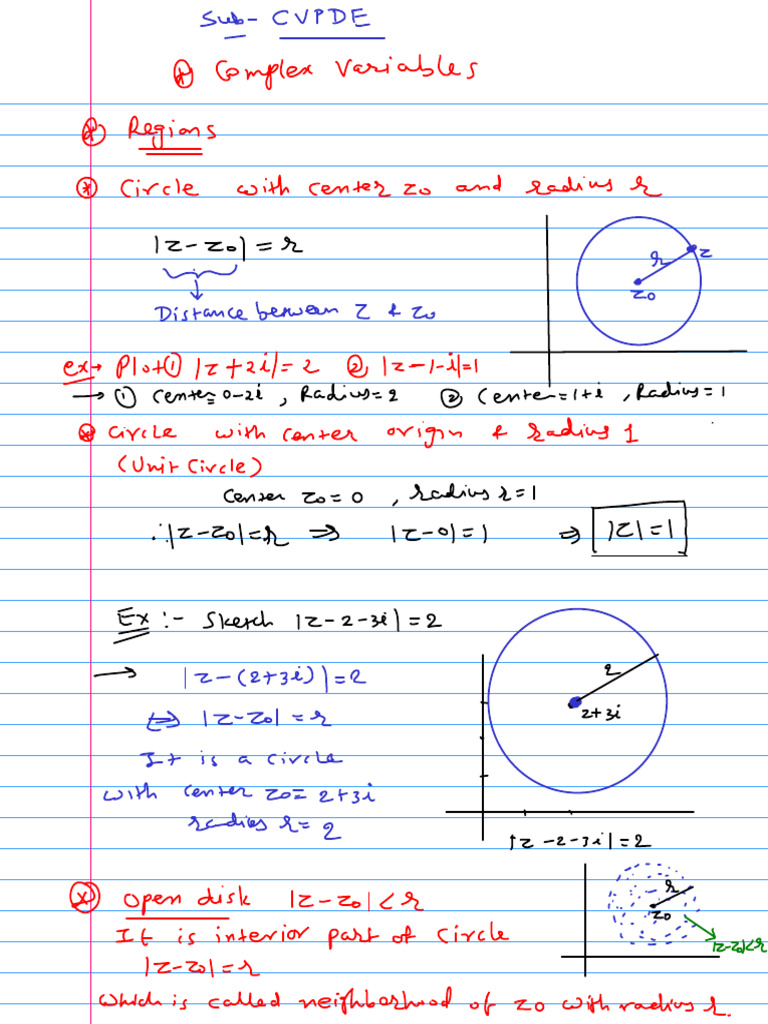 Sub- CVPDE
* Complex Variables
* Regions
* Circle with center z0 and radius r
|z-z0| = r
Distance between z & z0
r
z
z0
ex→ Plot ① |z+2i|=2 ② |z-1-i|=1
→ ① Center=0-2i , Radius=2 ② Center=1+i , Radius=1
* Circle with center origin & radius 1
(Unit Circle)
Center z0=0 , radius r=1
∴|z-z0|=r ⇒ |z-0|=1 ⇒ |z|=1
Ex :- Sketch |z-2-3i|=2
→ |z-(2+3i)|=2
⇔ |z-z0|=r
It is a circle
with center z0= 2+3i
radius r= 2
2
2+3i
|z-2-3i|=2
* Open disk |z-z0|<r
It is interior part of Circle
|z-z0|=r
which is called neighborhood of z0 with radius r.
r
z0
|z-z0|<r